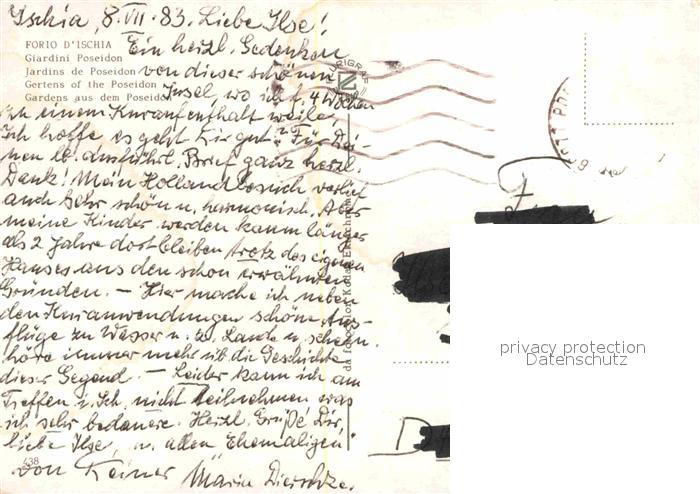 Ischia, 8.VII.83. Liebe Ilse!
Ein herzl. Gedenken
FORIO D'ISCHIA
Giardini Poseidon
Jardins de Poseidon
Gertens of the Poseidon
Gardens aus dem Poseidon
von dieser schönen
Insel, wo ich f. 4 Wochen
zu einem Kuraufenthalt weile.
Ich hoffe es geht Dir gut? Für Dei-
nen lb. ausführl. Brief ganz herzl.
Dank! Mein Hollandbesuch verlief
auch sehr schön u. harmonisch. Aber
meine Kinder werden kaum länger
als 2 Jahre dort bleiben trotz des eigenen
Hauses aus den schon erwähnten
Gründen. – Hier mache ich neben
den Kuranwendungen schöne Aus-
flüge zu Wasser u. zu Lande u.
höre immer mehr üb. die Geschichte
dieser Gegend. – Leider kann ich am
Treffen i. Ich. nicht teilnehmen was
ich sehr bedauere. Herzl. Grüße Dir,
liebe Ilse, u. allen "Ehemaligen"
von Deiner
438
da fotocolor Kodak Ektachrome
privacy protection
Datenschutz